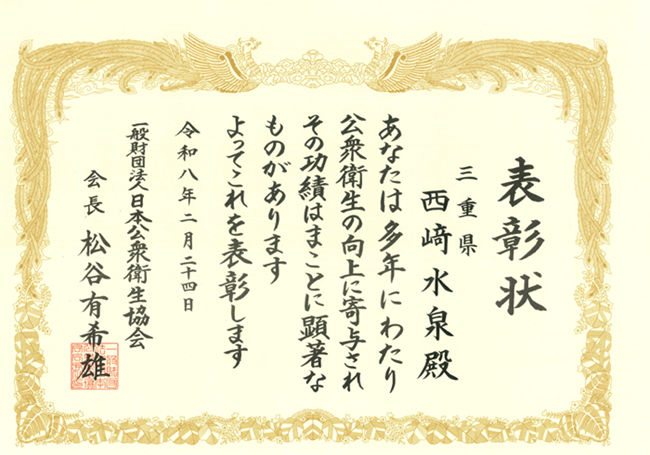 表彰状
三重県
西﨑水泉殿
あなたは多年にわたり
公衆衛生の向上に寄与され
その功績はまことに顕著な
ものがあります
よってこれを表彰します
令和八年二月二十四日
一般財団法人日本公衆衛生協会
会長 松谷有希雄